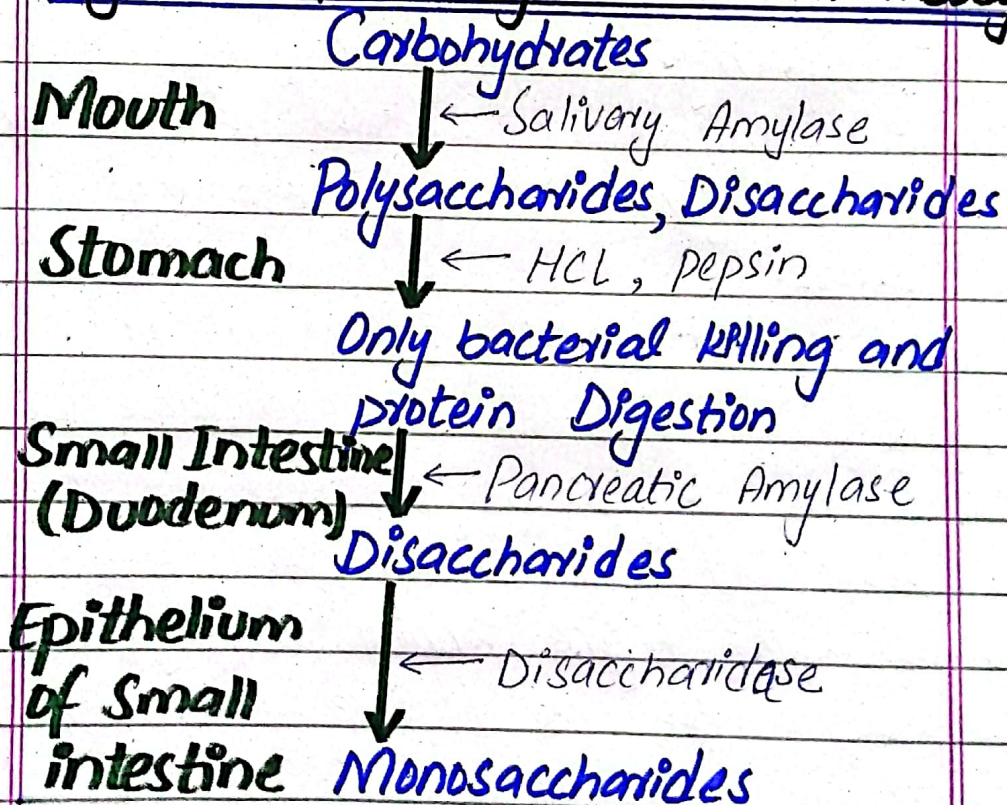 Carbohydrates
Mouth
← Salivary Amylase
Polysaccharides, Disaccharides
Stomach
← HCL, pepsin
Only bacterial killing and
protein Digestion
Small Intestine
(Duodenum)
← Pancreatic Amylase
Disaccharides
Epithelium
of Small
intestine
← Disaccharidase
Monosaccharides